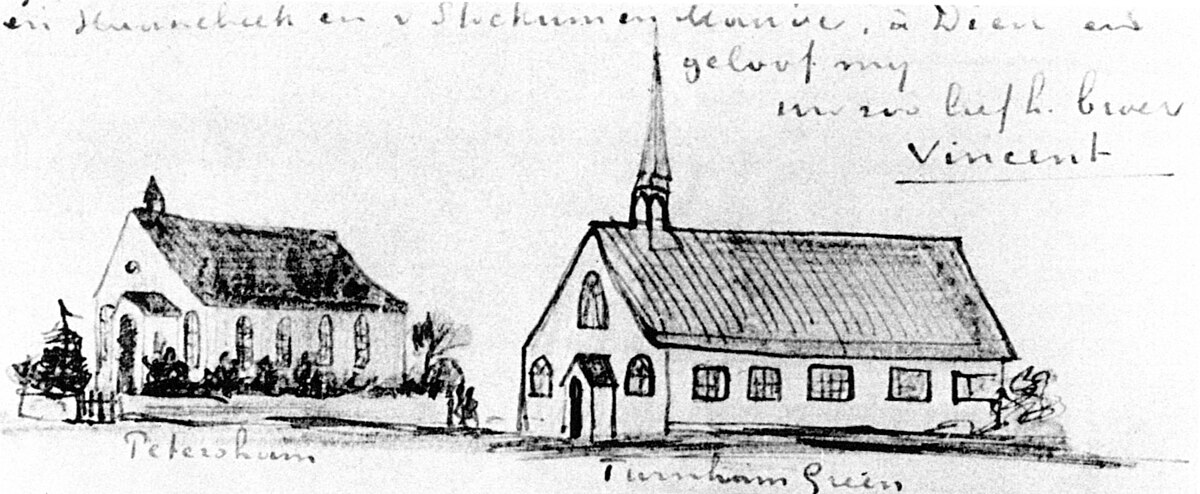 en Haanebeek en v Stockum en Mauve, à Dieu en
geloof mij
uw zoo liefh. broer
Vincent
Petersham
Turnham Green